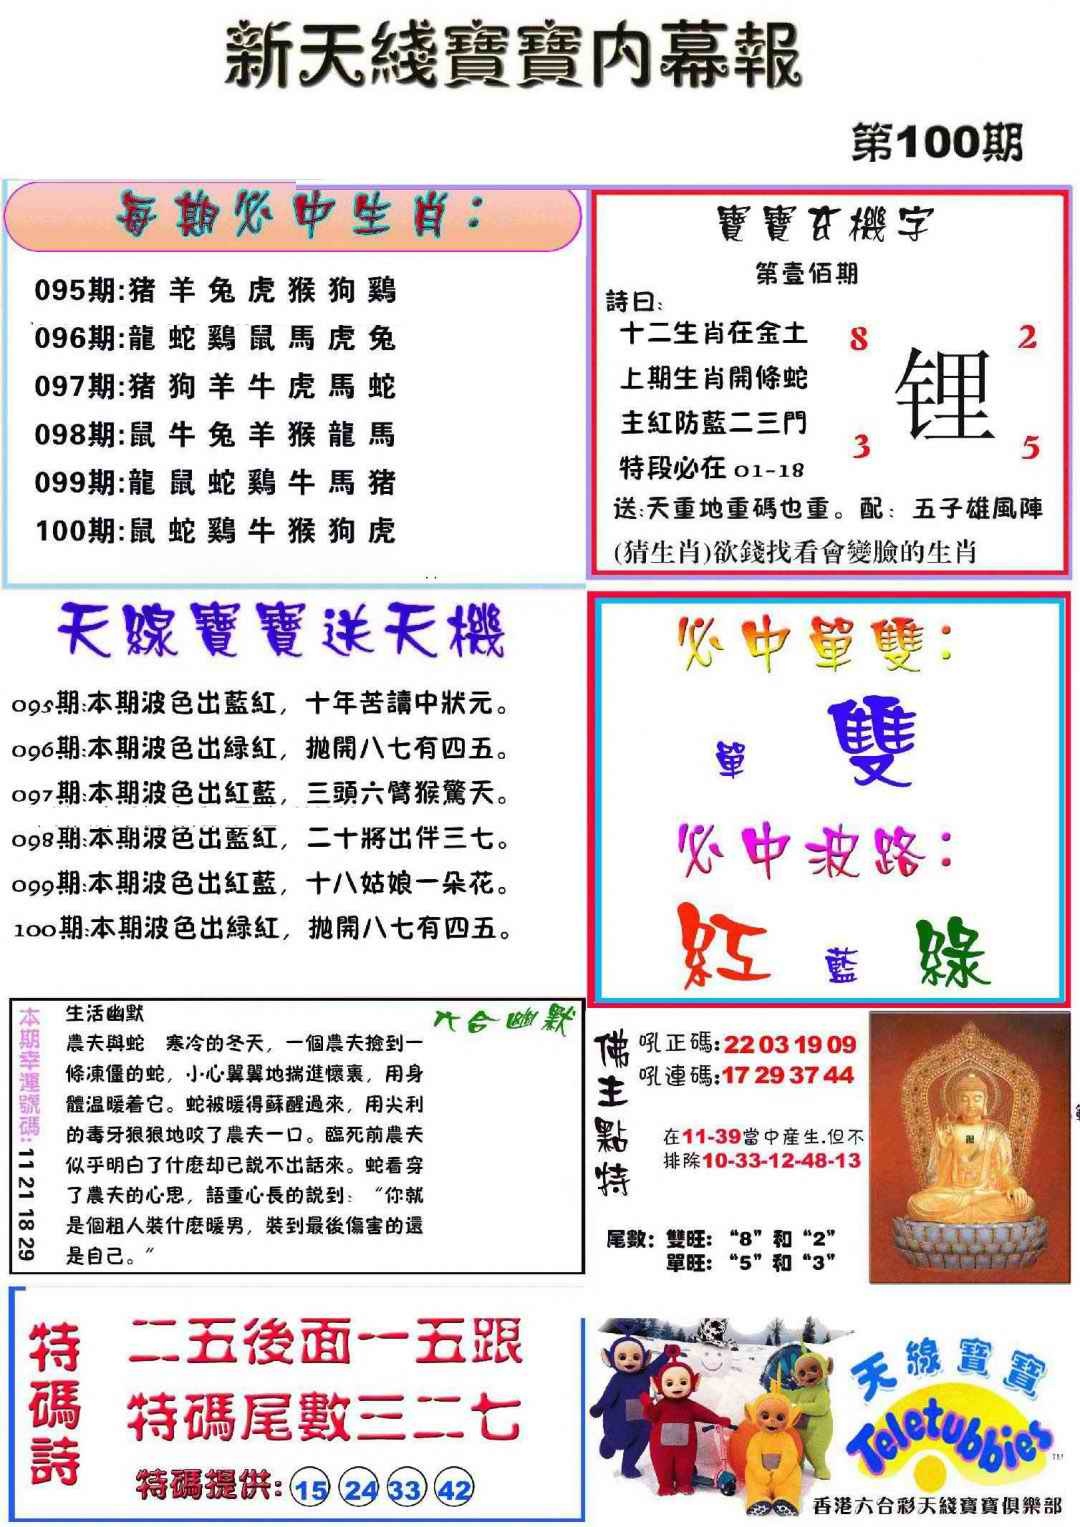 新天綫寶寶内幕報
第100期
每期必中生肖:
095期:猪 羊 兔 虎 猴 狗 鷄
096期:龍 蛇 鷄 鼠 馬 虎 兔
097期:猪 狗 羊 牛 虎 馬 蛇
098期:鼠 牛 兔 羊 猴 龍 馬
099期:龍 鼠 蛇 鷄 牛 馬 猪
100期:鼠 蛇 鷄 牛 猴 狗 虎
寶寶玄機字
第壹佰期
詩曰:
十二生肖在金土
上期生肖開條蛇
主紅防藍二三門
特段必在 01-18
8 2
锂
3 5
送:天重地重碼也重。配: 五子雄風陣
(猜生肖)欲錢找看會變臉的生肖
天線寶寶送天機
095期:本期波色出藍紅, 十年苦讀中狀元。
096期:本期波色出緑紅, 抛開八七有四五。
097期:本期波色出紅藍, 三頭六臂猴驚天。
098期:本期波色出藍紅, 二十將出伴三七。
099期:本期波色出紅藍, 十八姑娘一朵花。
100期:本期波色出緑紅, 抛開八七有四五。
必中單雙:
單 雙
必中波路:
紅 藍 綠
本期幸運號碼: 11 21 18 29
生活幽默
六合幽默
農夫與蛇 寒冷的冬天, 一個農夫撿到一
條凍僵的蛇, 小心翼翼地揣進懷裏, 用身
體温暖着它。蛇被暖得蘇醒過來, 用尖利
的毒牙狠狠地咬了農夫一口。臨死前農夫
似乎明白了什麽却已說不出話來。蛇看穿
了農夫的心思, 語重心長的説到: “你就
是個粗人裝什麽暖男, 裝到最後傷害的還
是自己。”
佛主點特
吼正碼:22 03 19 09
吼連碼:17 29 37 44
在11-39當中産生.但不
排除10-33-12-48-13
尾數: 雙旺: “8”和“2”
單旺: “5”和“3”
特碼詩
二五後面一五跟
特碼尾數三二七
特碼提供: 15 24 33 42
天線寶寶
Teletubbies
TM
香港六合彩天綫寶寶俱樂部